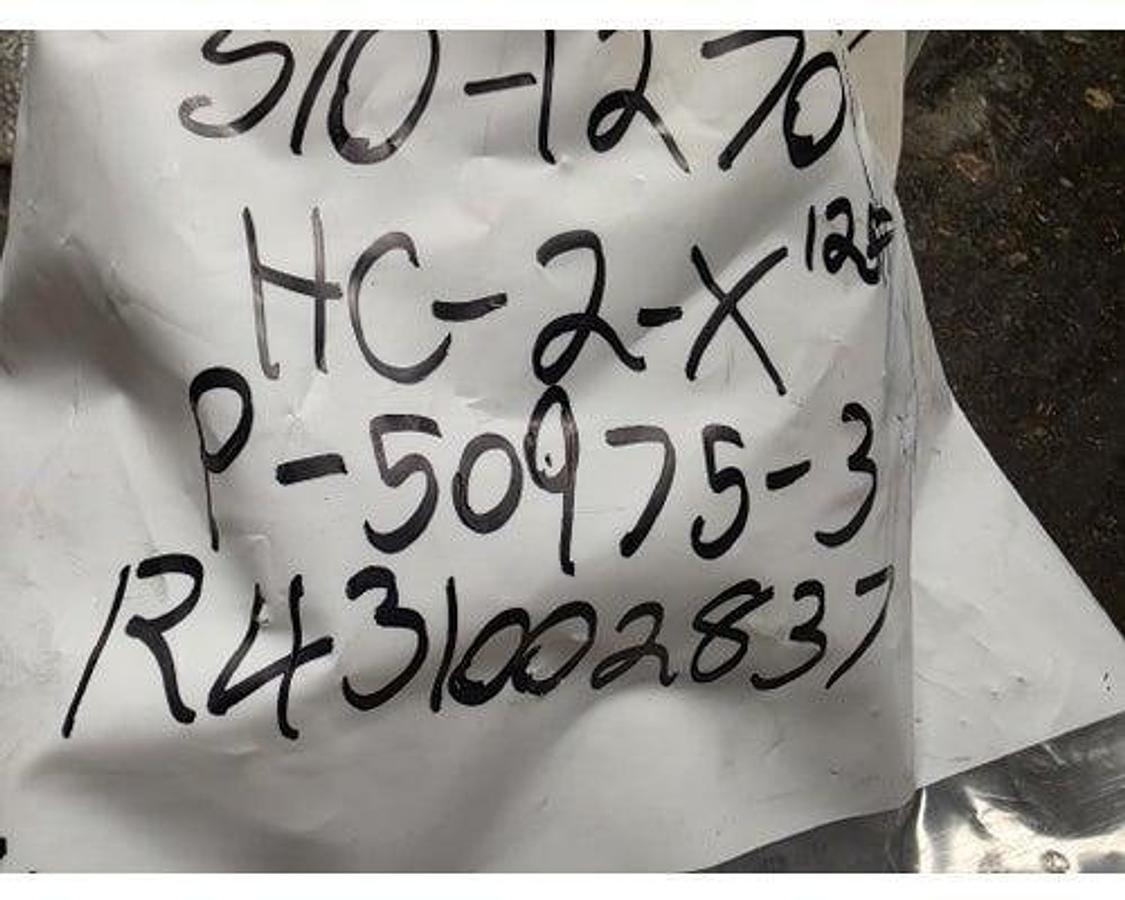 510-1270
HC-2-X 12E
P-50975-3
R431002837